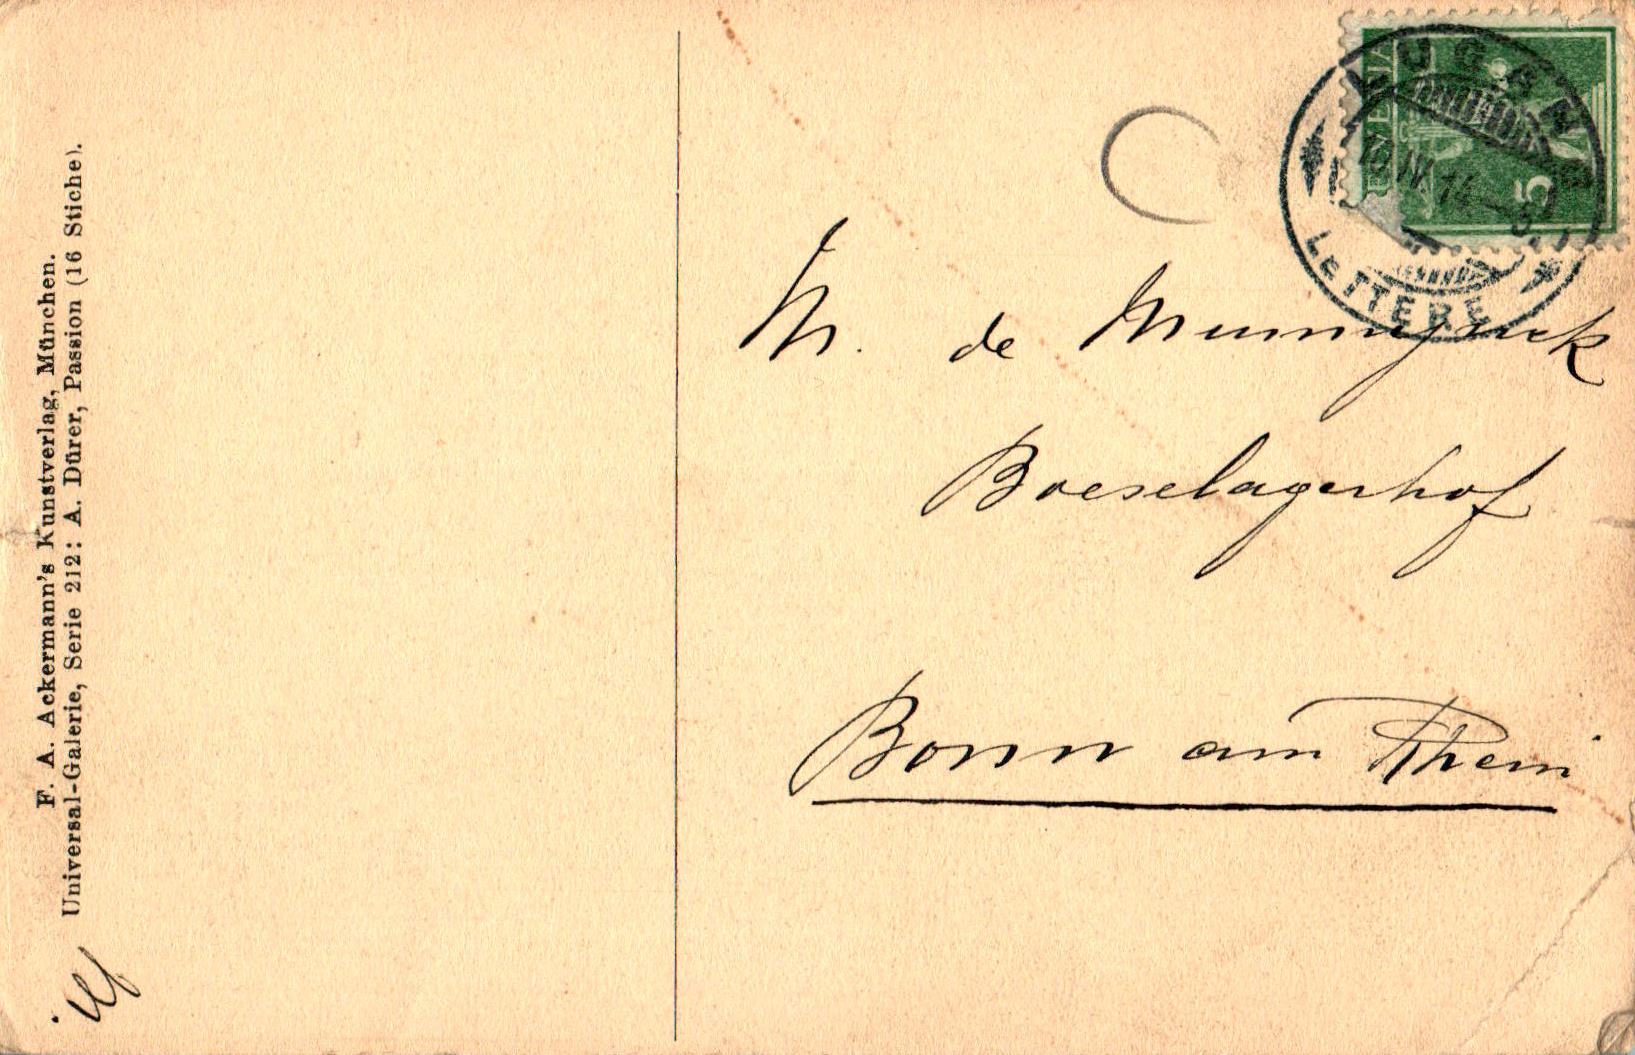 F. A. Ackermann's Kunstverlag, München.
Universal-Galerie, Serie 212: A. Dürer, Passion (16 Stiche).
HELVETIA
5
LUGANO
10.IV.14
LETTERE
M. de Munnynck
Boeselagerhof
Bonn am Rhein